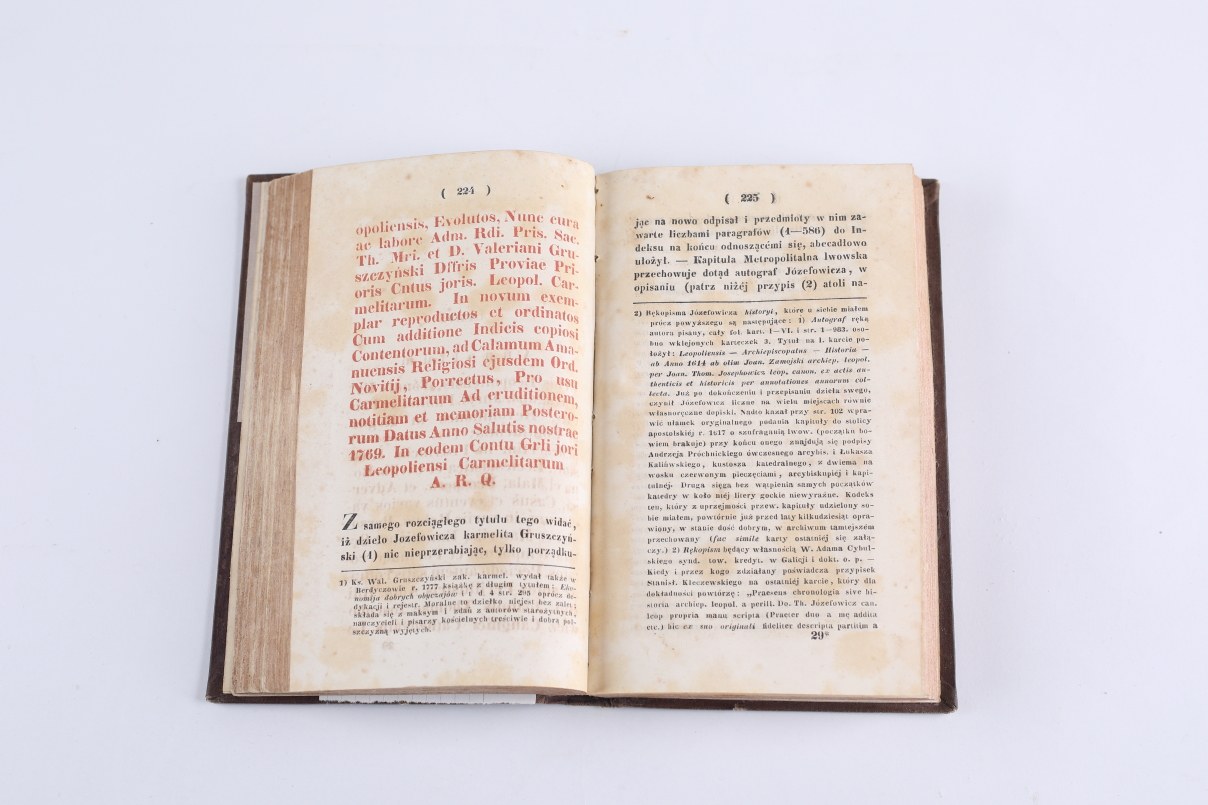 ( 224 )
opoliensis, Evolutos, Nunc cura
ac labore Adm. Rdi. Pris. Sac.
Th. Mri. et D. Valeriani Gru-
szczyński Dffris Proviae Pri-
oris Cntus joris. Leopol. Car-
melitarum. In novum exem-
plar reproductos et ordinatos
Cum additione Indicis copiosi
Contentorum, ad Calamum Ama-
nuensis Religiosi ejusdem Ord.
Novitij, Porrectus, Pro usu
Carmelitarum Ad eruditionem,
notitiam et memoriam Postero-
rum Datus Anno Salutis nostrae
1769. In eodem Contu Grli jori
Leopoliensi Carmelitarum
A. R. Q.
Z samego rozciągłego tytułu tego widać,
iż dzieło Jozefowicza karmelita Gruszczyń-
ski (1) nic nieprzerabiając, tylko porządku-
1) Ks. Wal. Gruszczyński zak. karmel. wydał także w
Berdyczowie r. 1777 książkę z długim tytułem: Eko-
nomija dobrych obyczajów i t d. 4 str. 295 oprócz de-
dykacji i rejestr. Moralne to dziełko niejest bez zalet;
składa się z maksym i zdań z autorów starożytnych,
nauczycieli i pisarzy kościelnych treściwie i dobrą pol-
szczyzną wyjętych.
( 225 )
jąc na nowo odpisał i przedmioty w nim za-
warte liczbami paragrafów (1—586) do In-
deksu na końcu odnoszącémi się, abecadłowo
ułożył. — Kapituła Metropolitalna lwowska
przechowuje dotąd autograf Józefowicza, w
opisaniu (patrz niżéj przypis (2) atoli na-
2) Rękopisma Józefowicza historyi, które u siebie miałem
prócz powyższego są następujące: 1) Autograf ręką
autora pisany, cały fol. kart. I—VI. i str. 1—983. osu-
bno wklejonych karteczek 3. Tytuł na I. karcie po-
łożył: Leopoliensis — Archiepiscopatus — Historia —
ab Anno 1614 ab olim Joan. Zamojski archiep. leopol.
per Joan. Thom. Josephowicz leop. canon. ex actis au-
thenticis et historicis per annotationes annorum col-
lecta. Już po dokończeniu i przepisaniu dzieła swego,
czynił Józefowicz liczne na wielu miejscach równie
własnoręczne dopiski. Nadto kazał przy str. 102 wpra-
wić ułamek oryginalnego podania kapituły do stolicy
apostolskiéj r. 1617 o szufraganią lwow. (początku bo-
wiem brakoje) przy końcu onego znajdują się podpisy
Andrzeja Próchnickiego ówczesnego arcybis. i Łukasza
Kalińskiego, kustosza katedralnego, z dwiema na
wosku czerwonym pieczęciami, arcybiskupiéj i kapi-
tulnéj. Druga sięga bez wątpienia samych początków
katedry w koło niéj litery gockie niewyraźne. Kodeks
ten, który z uprzejmości przew. kapituły udzielony so-
bie miałem, powtórnie już przed laty kilkudziesiąt opra-
wiony, w stanie dość dobrym, w archiwum tamtejszém
przechowany (fac simile karty ostatniéj się załą-
czy.) 2) Rękopism będący własnością W. Adama Cybul-
skiego synd. tow. kredyt. w Galicji i dokt. o. p. —
Kiedy i przez kogo zdziałany poświadcza przypisek
Stanisł. Kleczewskiego na ostatniéj karcie, który dla
dokładności powtórzę: „Praesens chronologia sive hi-
storia archiep. leopol. a perill. Do. Th. Józefowicz can.
leop propria manu scripta (Praeter duo a me addita
etc.) hic ex suo originali fideliter descripta partim a
29*